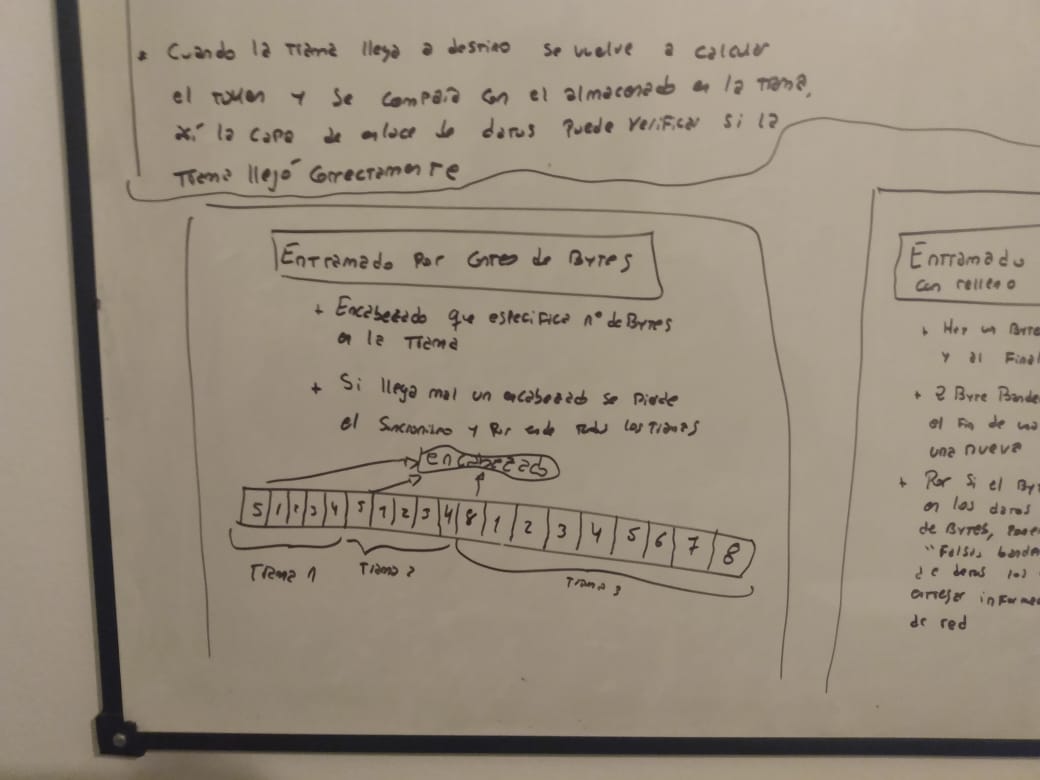 * Cuando la trama llega a destino se vuelve a calcular
el token y se compara con el almacenado en la trama,
así la capa de enlace de datos puede verificar si la
trama llegó correctamente
Entramado por conteo de Bytes
+ Encabezado que especifica nº de Bytes
en la trama
+ Si llega mal un encabezado se pierde
el sincronismo y por ende todas las tramas
encabezado
5 1 2 3 4 5 1 2 3 4 8 1 2 3 4 5 6 7 8
Trama 1 Trama 2 Trama 3
Entramado
con relleno
+ Hay un Byte
y al final
+ 2 Byte Bande
el fin de una
una nueva
+ Por si el By
en los datos
de Bytes, pone
"Falsas bande
los
arrojar informa
de red